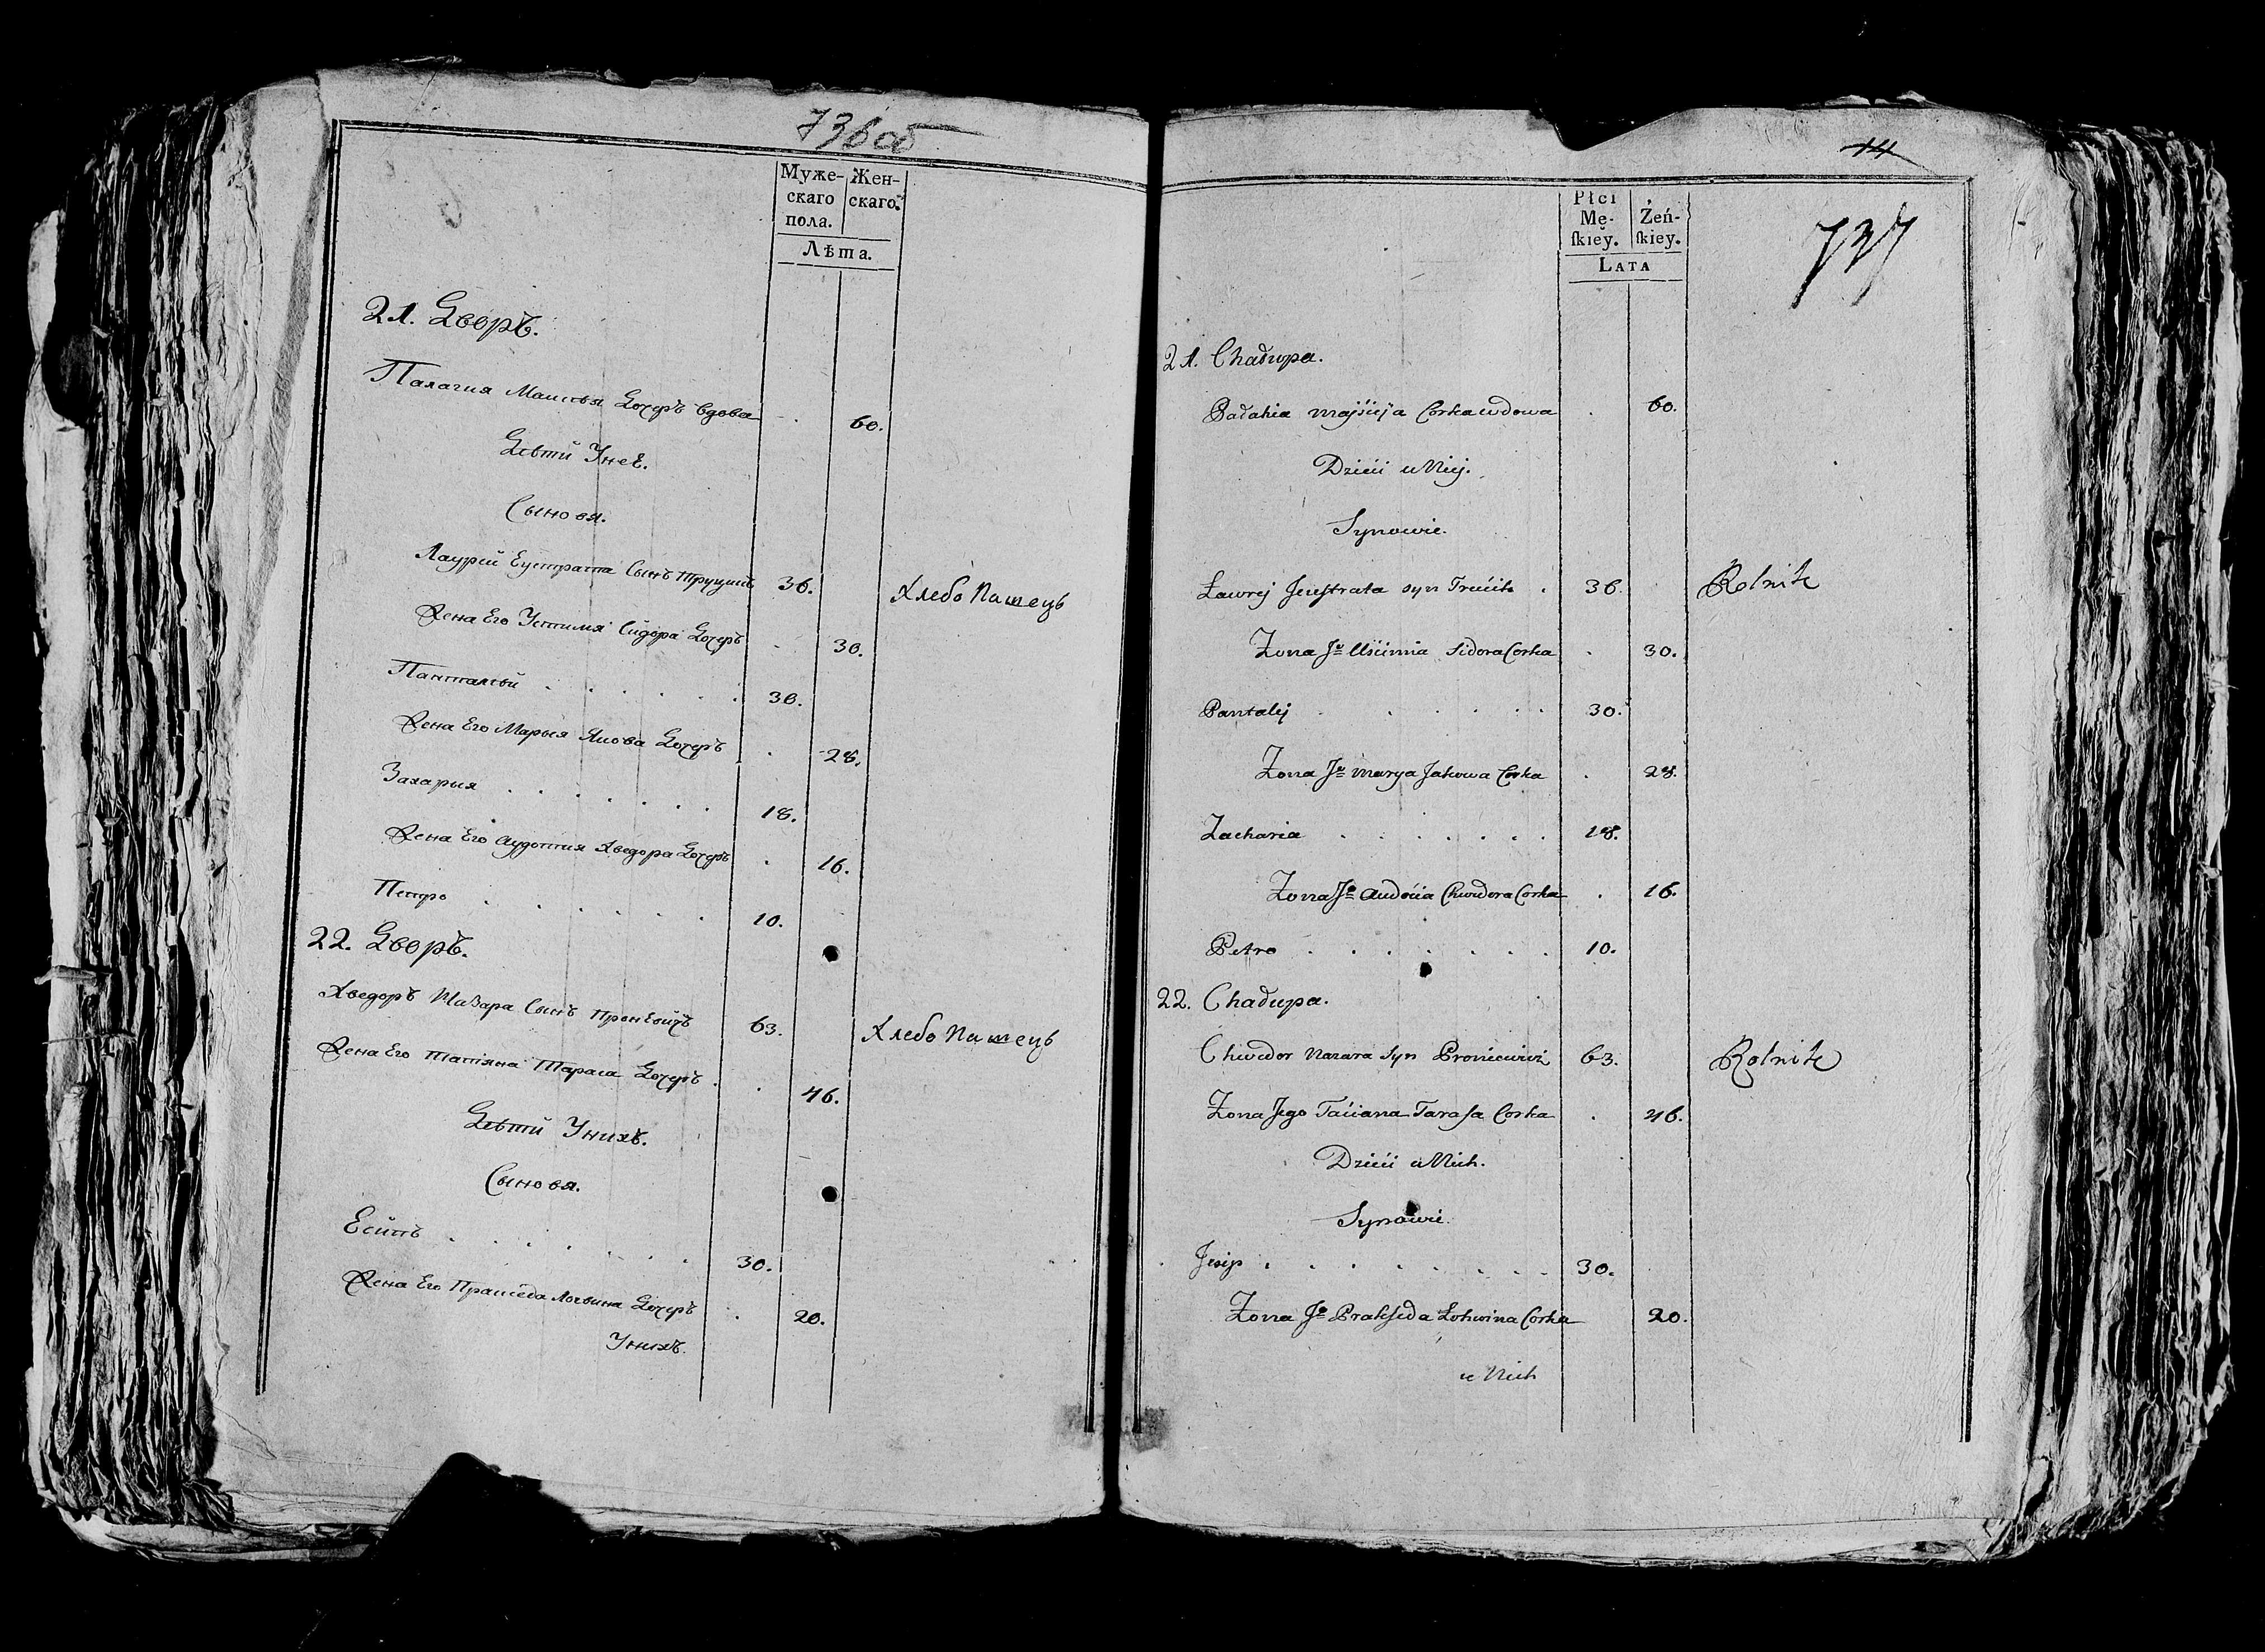 736 об
Муже-
скаго
пола.
Жен-
скаго.
Лѣта.
21. Дворъ.
Палагия Маисѣя Дочеръ вдова . 60.
Дѣтй Унеѣ.
Сыновя.
Лаурѣй Еустрата Сынъ Труцикъ 36. Хлебо Пашець
Жена Его Устимя Сидора Дочеръ . 30.
Панталѣй . . . . . . 30.
Жена Его Марыя Якова Дочеръ . 28.
Захарыя . . . . . . . 18.
Жена Его аудотия Хведора Дочеръ . 16.
Петро . . . . . . 10.
22. Дворъ.
Хведоръ Назара Сынъ Проневичъ 63. Хлебо Пашець
Жена Его Татіяна Тараса Дочеръ . . 46.
Дѣтй Унихъ.
Сыновя.
Есипъ . . . . . . . 30.
Жена Его Пракседа Логвина Дочеръ . 20.
Унихъ.
14
737
Płci
Mę-
skiey.
Żeń-
skiey.
LATA
21. Chałupa.
Pałahia Majsieja Corka wdowa . 60.
Dzieci u Niej.
Synowie.
Ławrej Jeustrata syn Trucik . 36. Rolnik
Zona Jo Uscimia Sidora Corka . 30.
Pantalej . . . . . 30.
Zona Jo Marya Jakowa Corka . 28.
Zacharia . . . . . . 18.
Zona Jo Audocia Chwedora Corka . 16.
Petro . . . . . . 10.
22. Chałupa.
Chwedor Nazara Syn Proniewicz 63. Rolnik
Zona Jego Taciana Tarasa Corka . 46.
Dzieci u Nich.
Synowie.
Jesip . . . . . . . . 30.
Zona Jo Prakseda Łohwina Corka 20.
u Nich